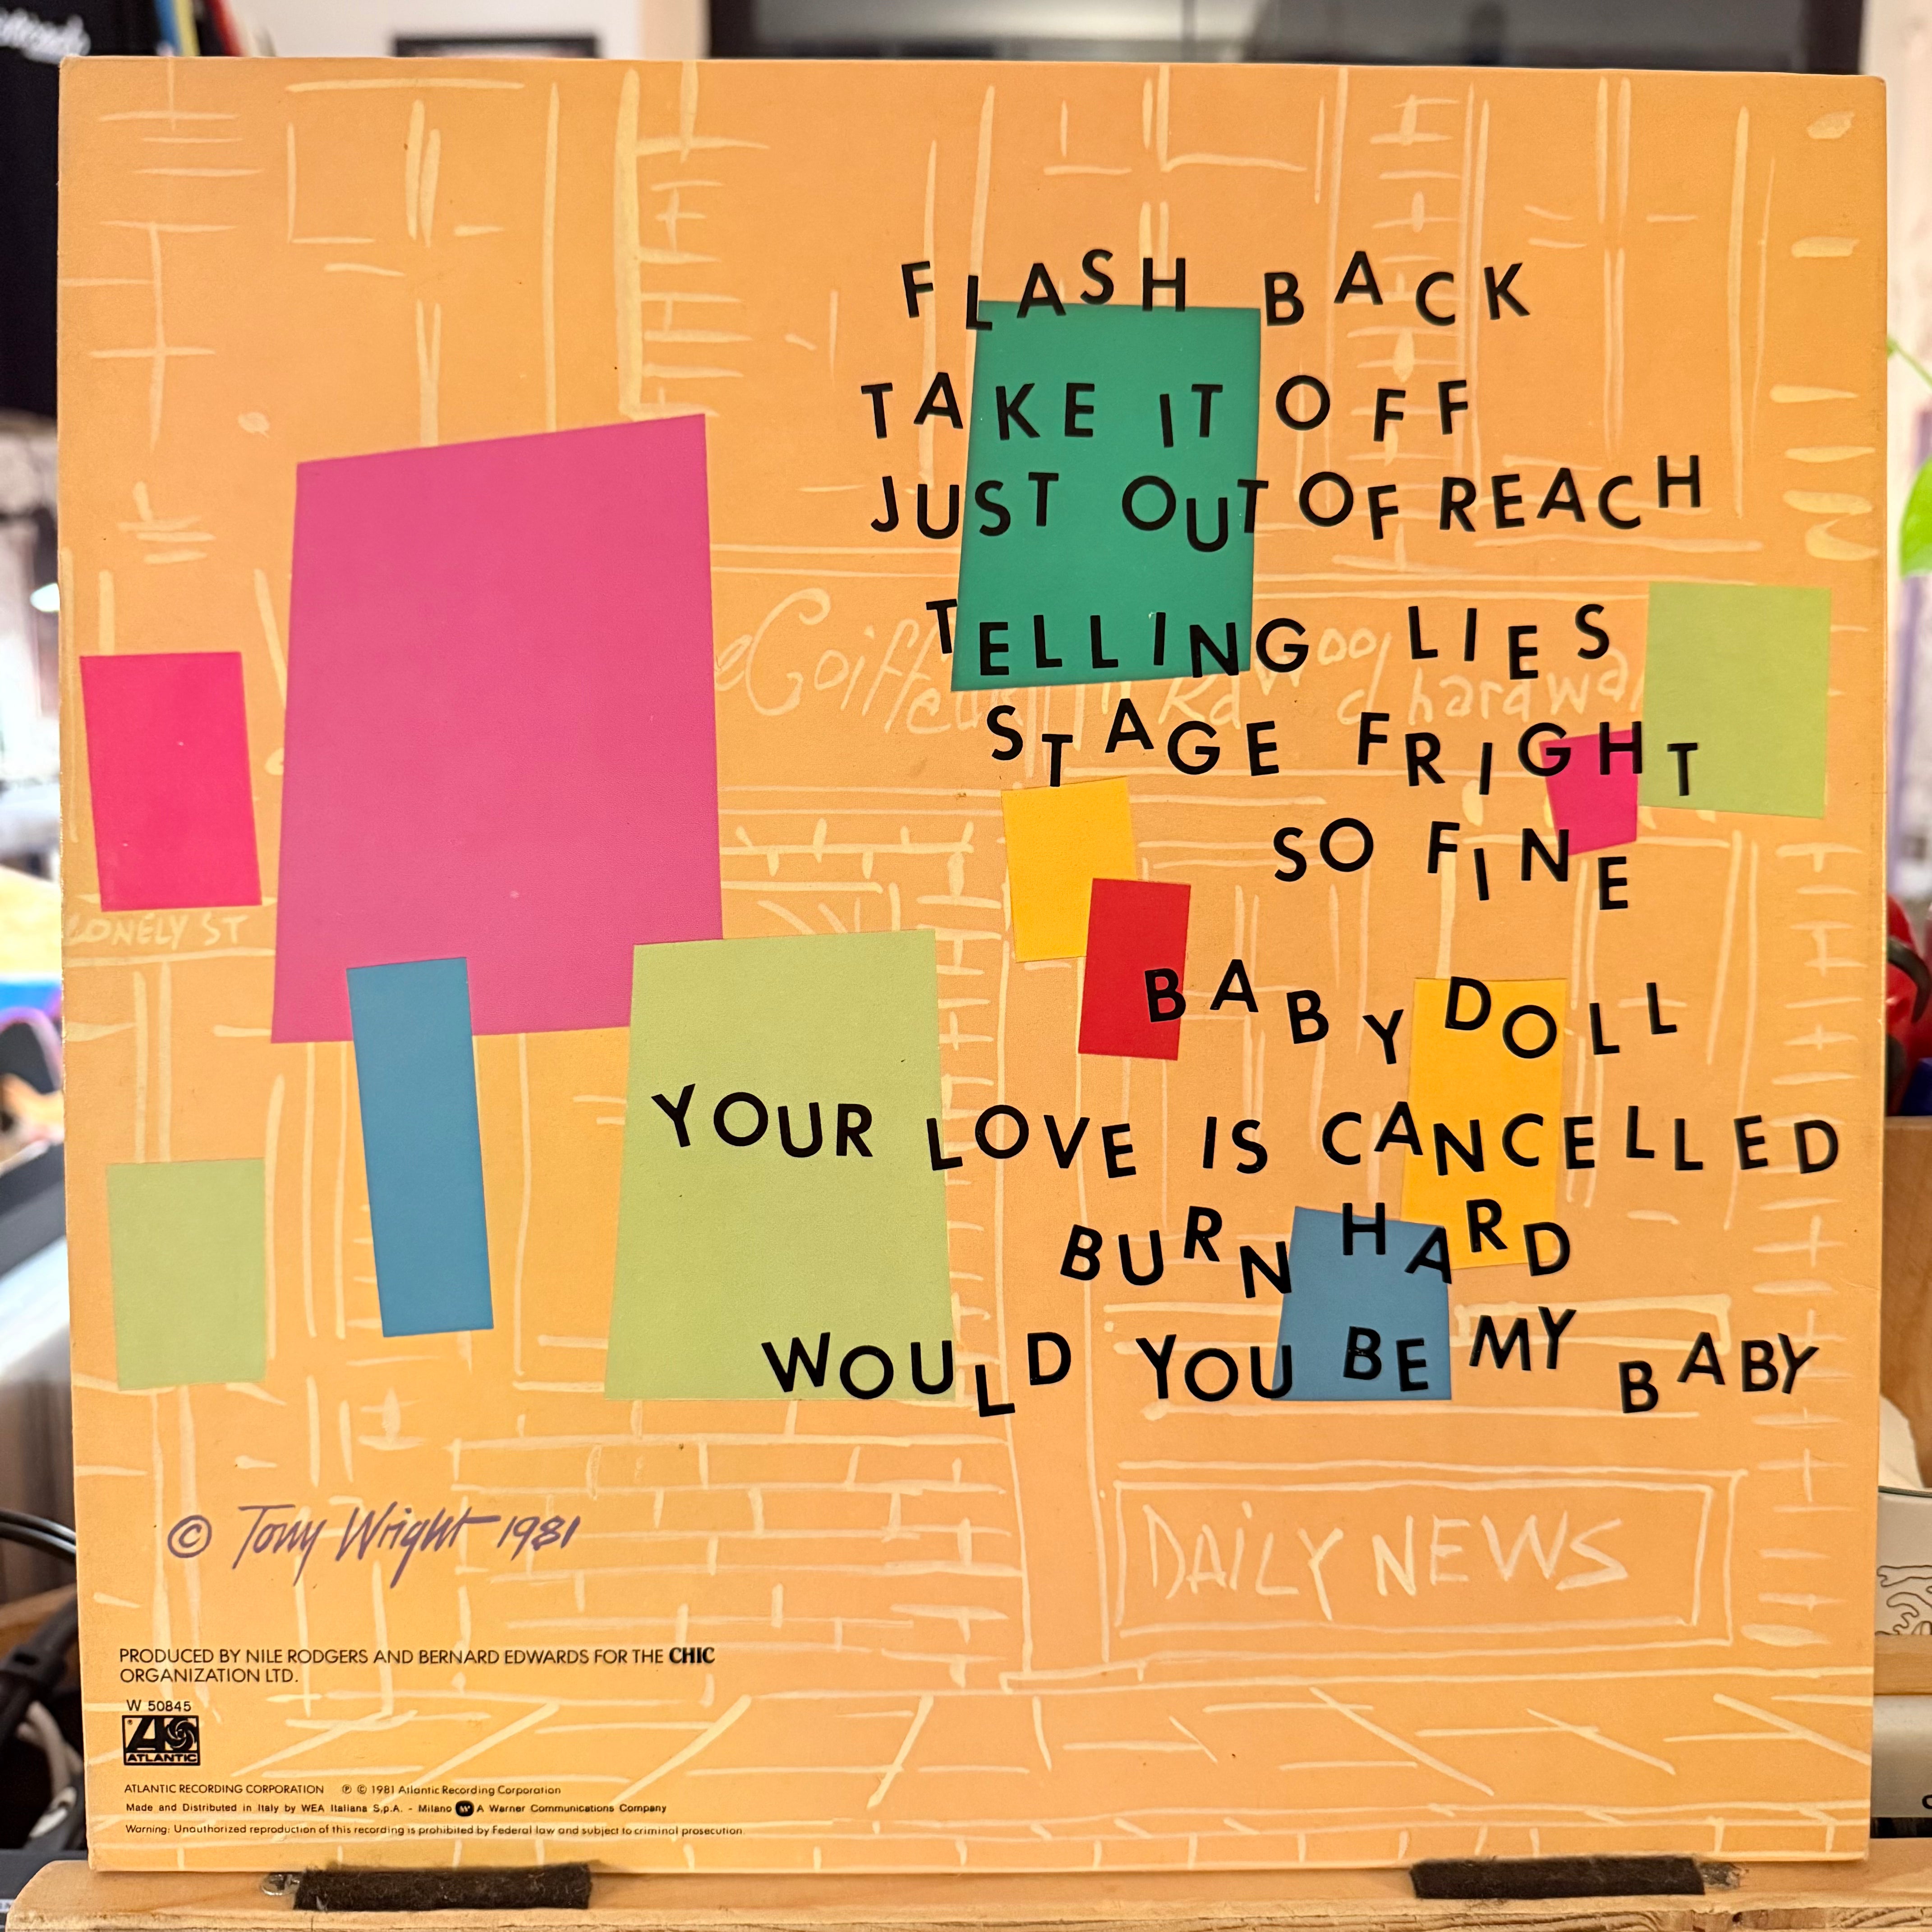 FLASH BACK
TAKE IT OFF
JUST OUT OF REACH
TELLING LIES
STAGE FRIGHT
SO FINE
BABY DOLL
YOUR LOVE IS CANCELLED
BURN HARD
WOULD YOU BE MY BABY
LONELY ST
DAILY NEWS
© Tony Wright 1981
PRODUCED BY NILE RODGERS AND BERNARD EDWARDS FOR THE CHIC
ORGANIZATION LTD.
W 50845
ATLANTIC
ATLANTIC RECORDING CORPORATION ℗ © 1981 Atlantic Recording Corporation
Made and Distributed in Italy by WEA Italiana S.p.A. - Milano W A Warner Communications Company
Warning: Unauthorized reproduction of this recording is prohibited by Federal law and subject to criminal prosecution.